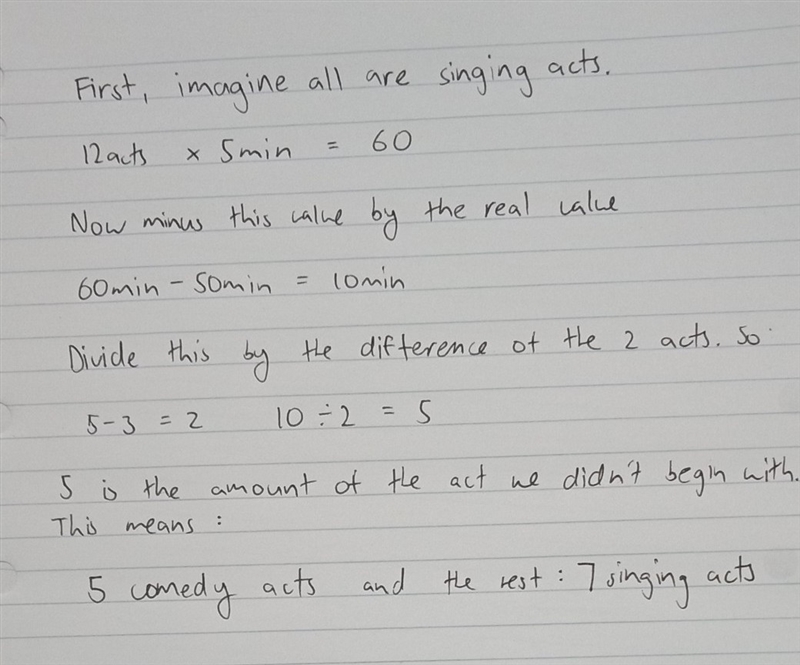 First, imagine all are singing acts.
12acts × 5min = 60
Now minus this value by the real value
60min - 50min = 10min
Divide this by the difference of the 2 acts. So
5-3 = 2 10 ÷ 2 = 5
5 is the amount of the act we didn't begin with.
This means :
5 comedy acts and the rest : 7 singing acts